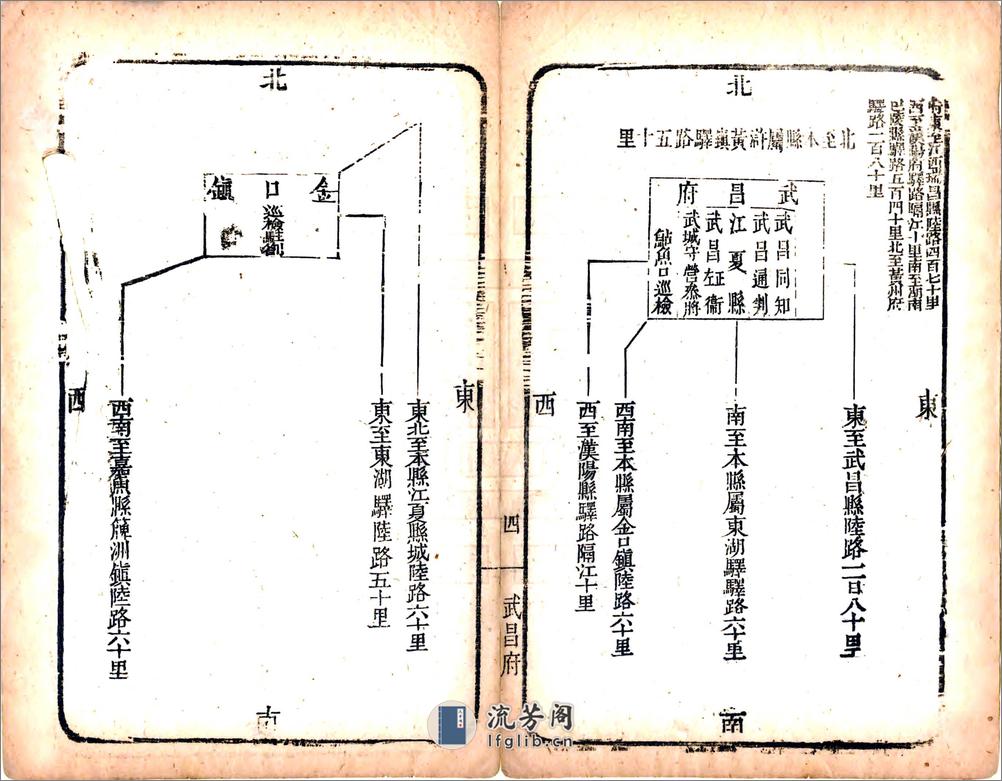 府東至江西瑞昌縣陸路四百七十里
西至漢陽府驛路隔江十里南至湖南
巴陵縣驛路五百四十里北至黃州府
驛路一百八十里
北
北至本縣屬滸黃鎮驛路五十里
武昌府
武昌同知
武昌通判
江夏縣
武昌左衞
武城守營叅將
鮎魚口巡檢
東
西
東至武昌縣陸路一百八十里
南至本縣屬東湖驛驛路六十里
西南至本縣屬金口鎮陸路六十里
西至漢陽縣驛路隔江十里
南
四
武昌府
北
金口鎮
巡檢駐劄
東
西
東北至本縣江夏縣城陸路六十里
東至東湖驛陸路五十里
西南至嘉魚縣簰洲鎮陸路六十里
流芳阁
lfglib.cn